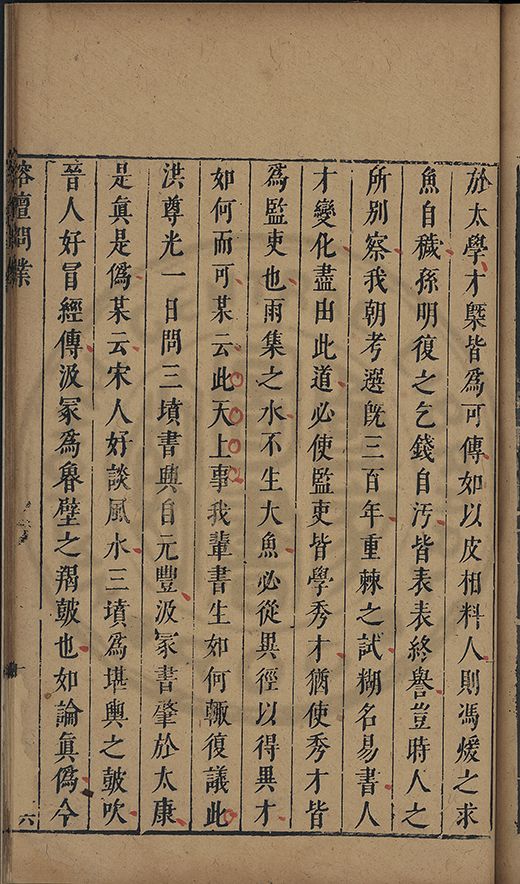 於太學才槩皆爲可傳如以皮相料人則馮煖之求
魚自穢孫明復之乞錢自汚皆表表終譽豈時人之
所別察我朝考選旣三百年重棘之試糊名易書人
才變化盡由此道必使監吏皆學秀才猶使秀才皆
爲監吏也雨集之水不生大魚必從異徑以得異才
如何而可某云此天上事我輩書生如何輙復議此
洪尊光一日問三墳書興自元豐汲冡書肇於太康
是眞是僞某云宋人好談風水三墳爲堪輿之皷吹
晉人好冒經傳汲冡爲魯壁之羯皷也如論眞僞今
榕壇問業
六